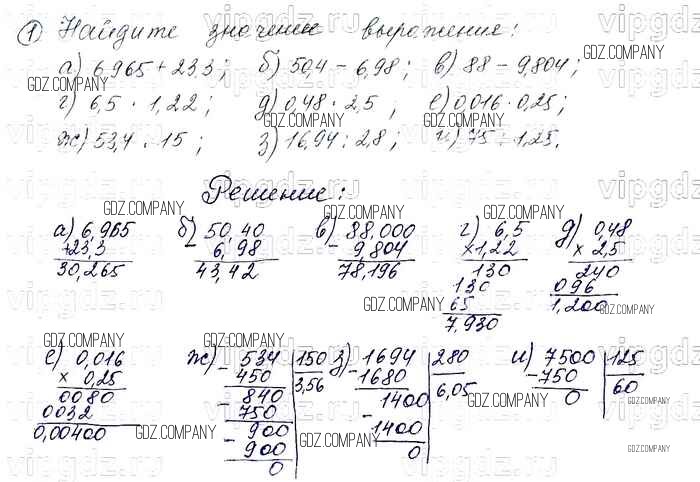 1 Найдите значение выражение:
а) 6,965 + 23,3; б) 50,4 - 6,98; в) 88 - 9,804;
г) 6,5 · 1,22; д) 0,48 · 2,5, е) 0,016 · 0,25;
ж) 53,4 : 15; з) 16,94 : 2,8; и) 75 : 1,25.
Решение:
а) 6,965 б) 50,40 в) 88,000 г) 6,5 д) 0,48
+23,3 6,98 - 9,804 ×1,22 × 2,5
30,265 43,42 78,196 130 240
130 096
65 1,200
7,930
е) 0,016 ж) - 534 150 з) - 1694 280 и) - 7500 125
× 0,25 450 3,56 1680 6,05 750 60
0080 - 840 - 1400 0
0032 750 1400
0,00400 - 900 0
900
0
GDZ.COMPANY
vipgdz.ru